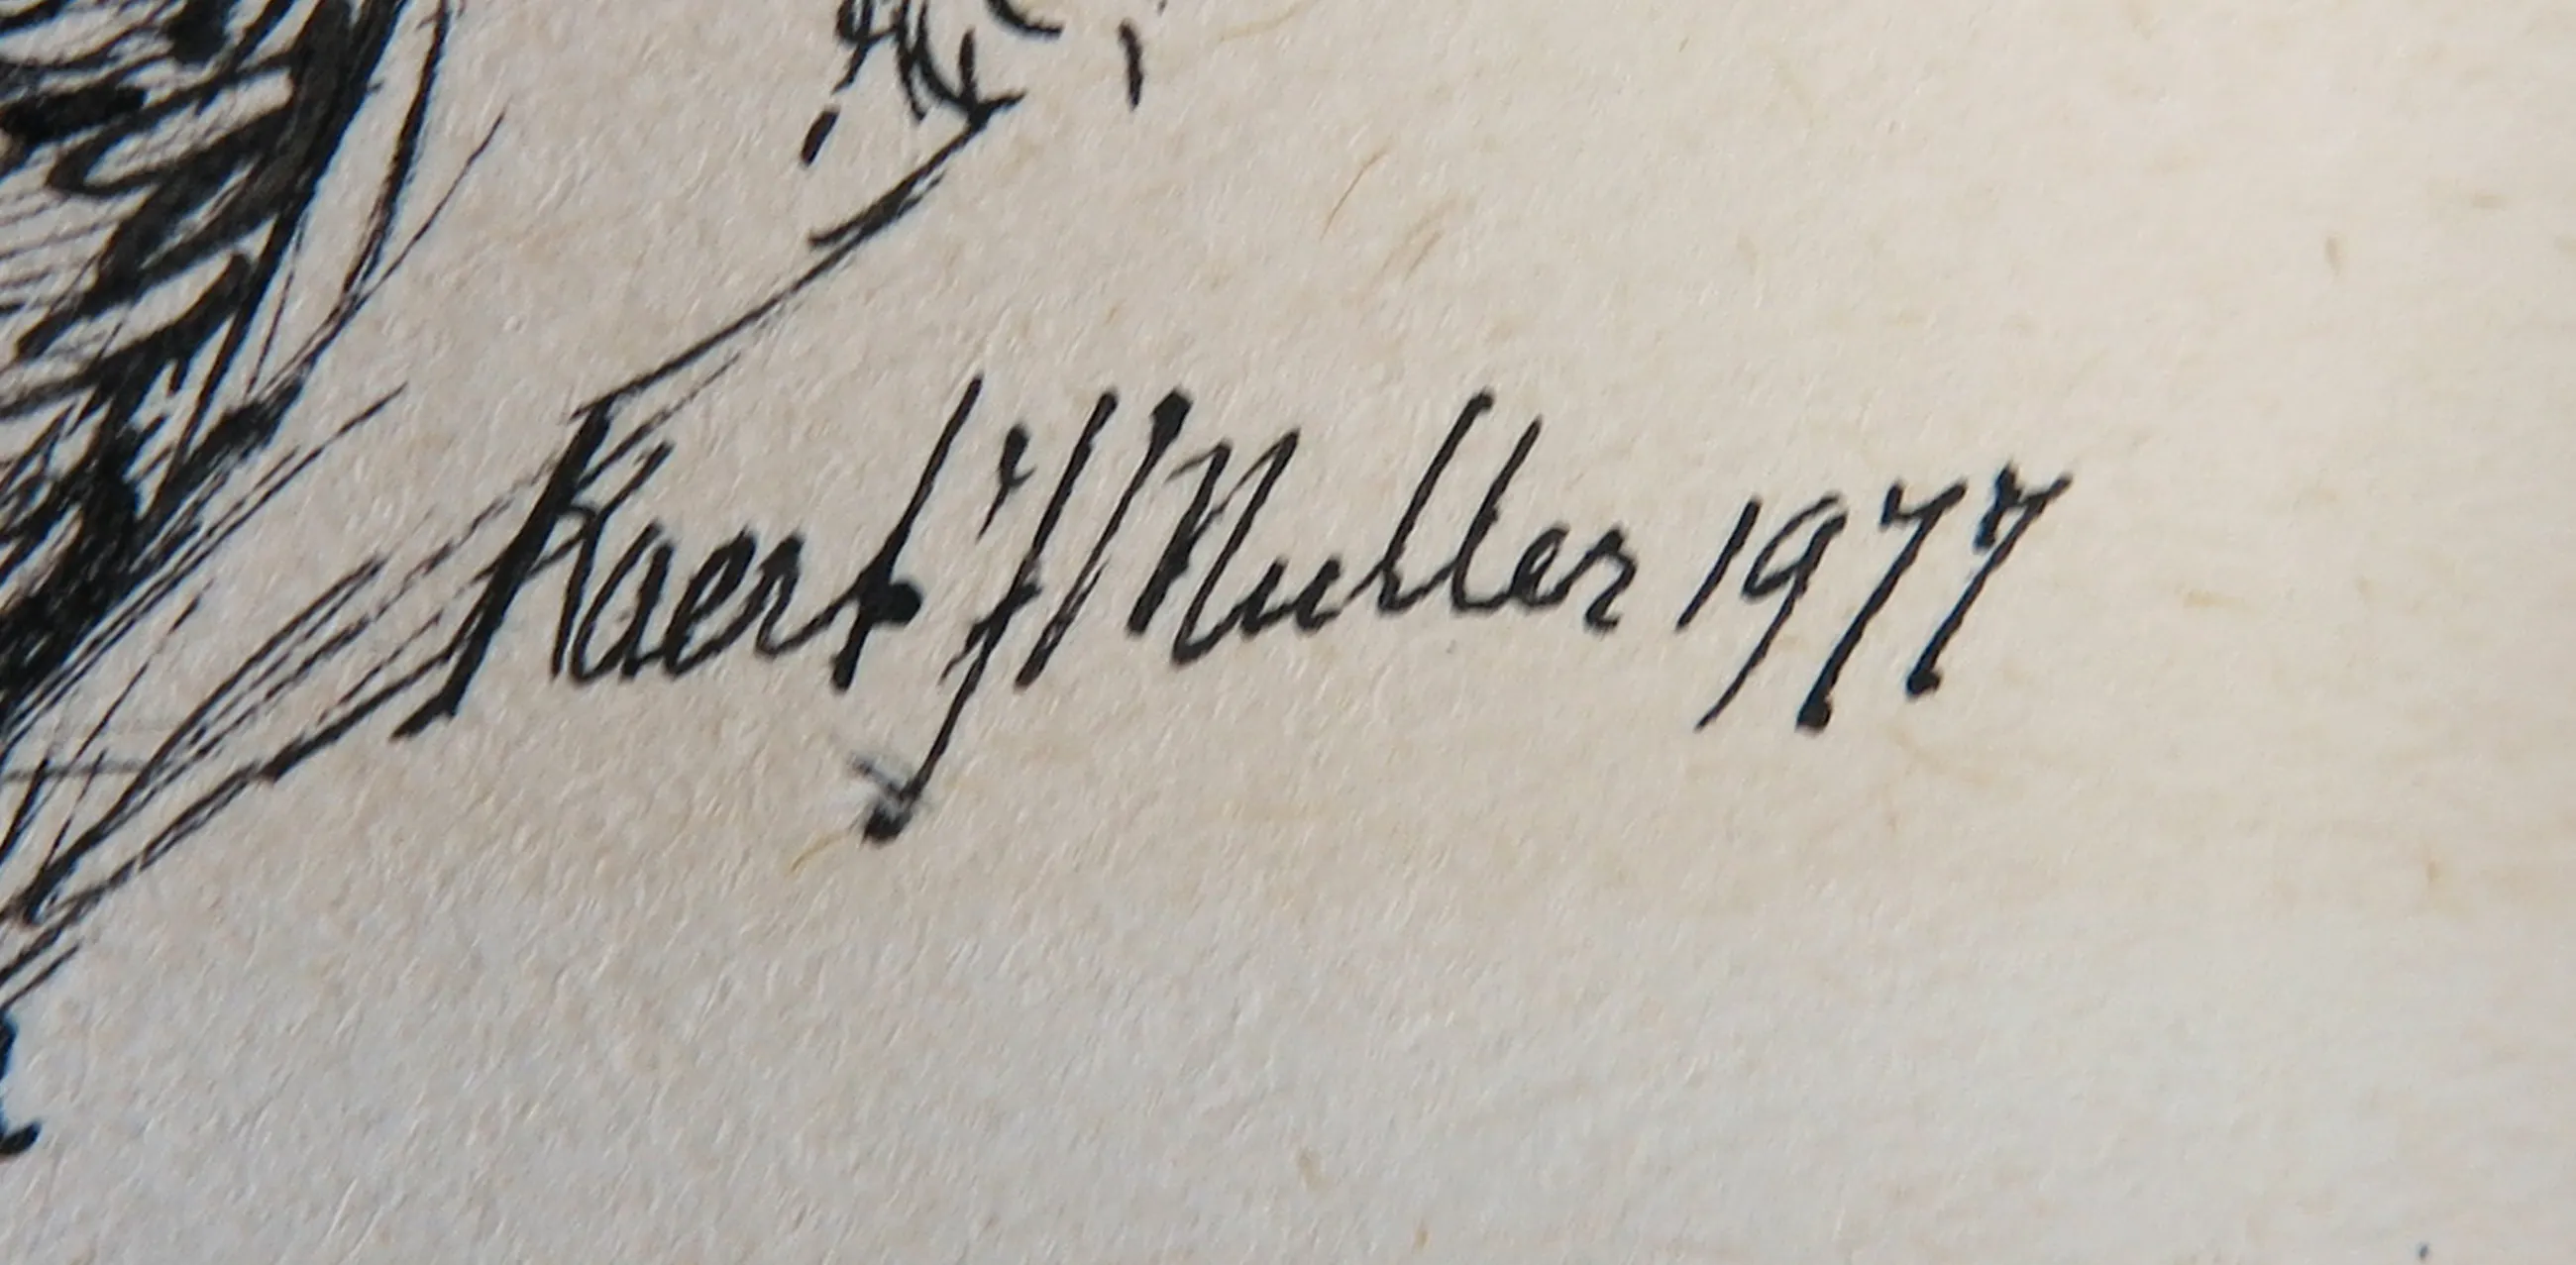 Kaert j/Muller 1977